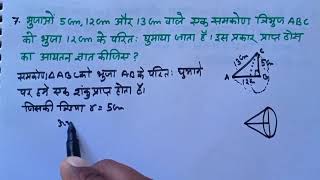 7. भुजाओं 5cm, 12cm और 13cm वाले एक समकोण त्रिभुज ABC
को भुजा 12cm के परितः घुमाया जाता है। इस प्रकार प्राप्त ठोस
का आयतन ज्ञात कीजिए ?
समकोण △ABC को भुजा AB के परितः घुमाने
पर हमें एक शंकु प्राप्त होता है।
जिसकी त्रिज्या r = 5cm
C
13cm
5cm
A
12cm
B